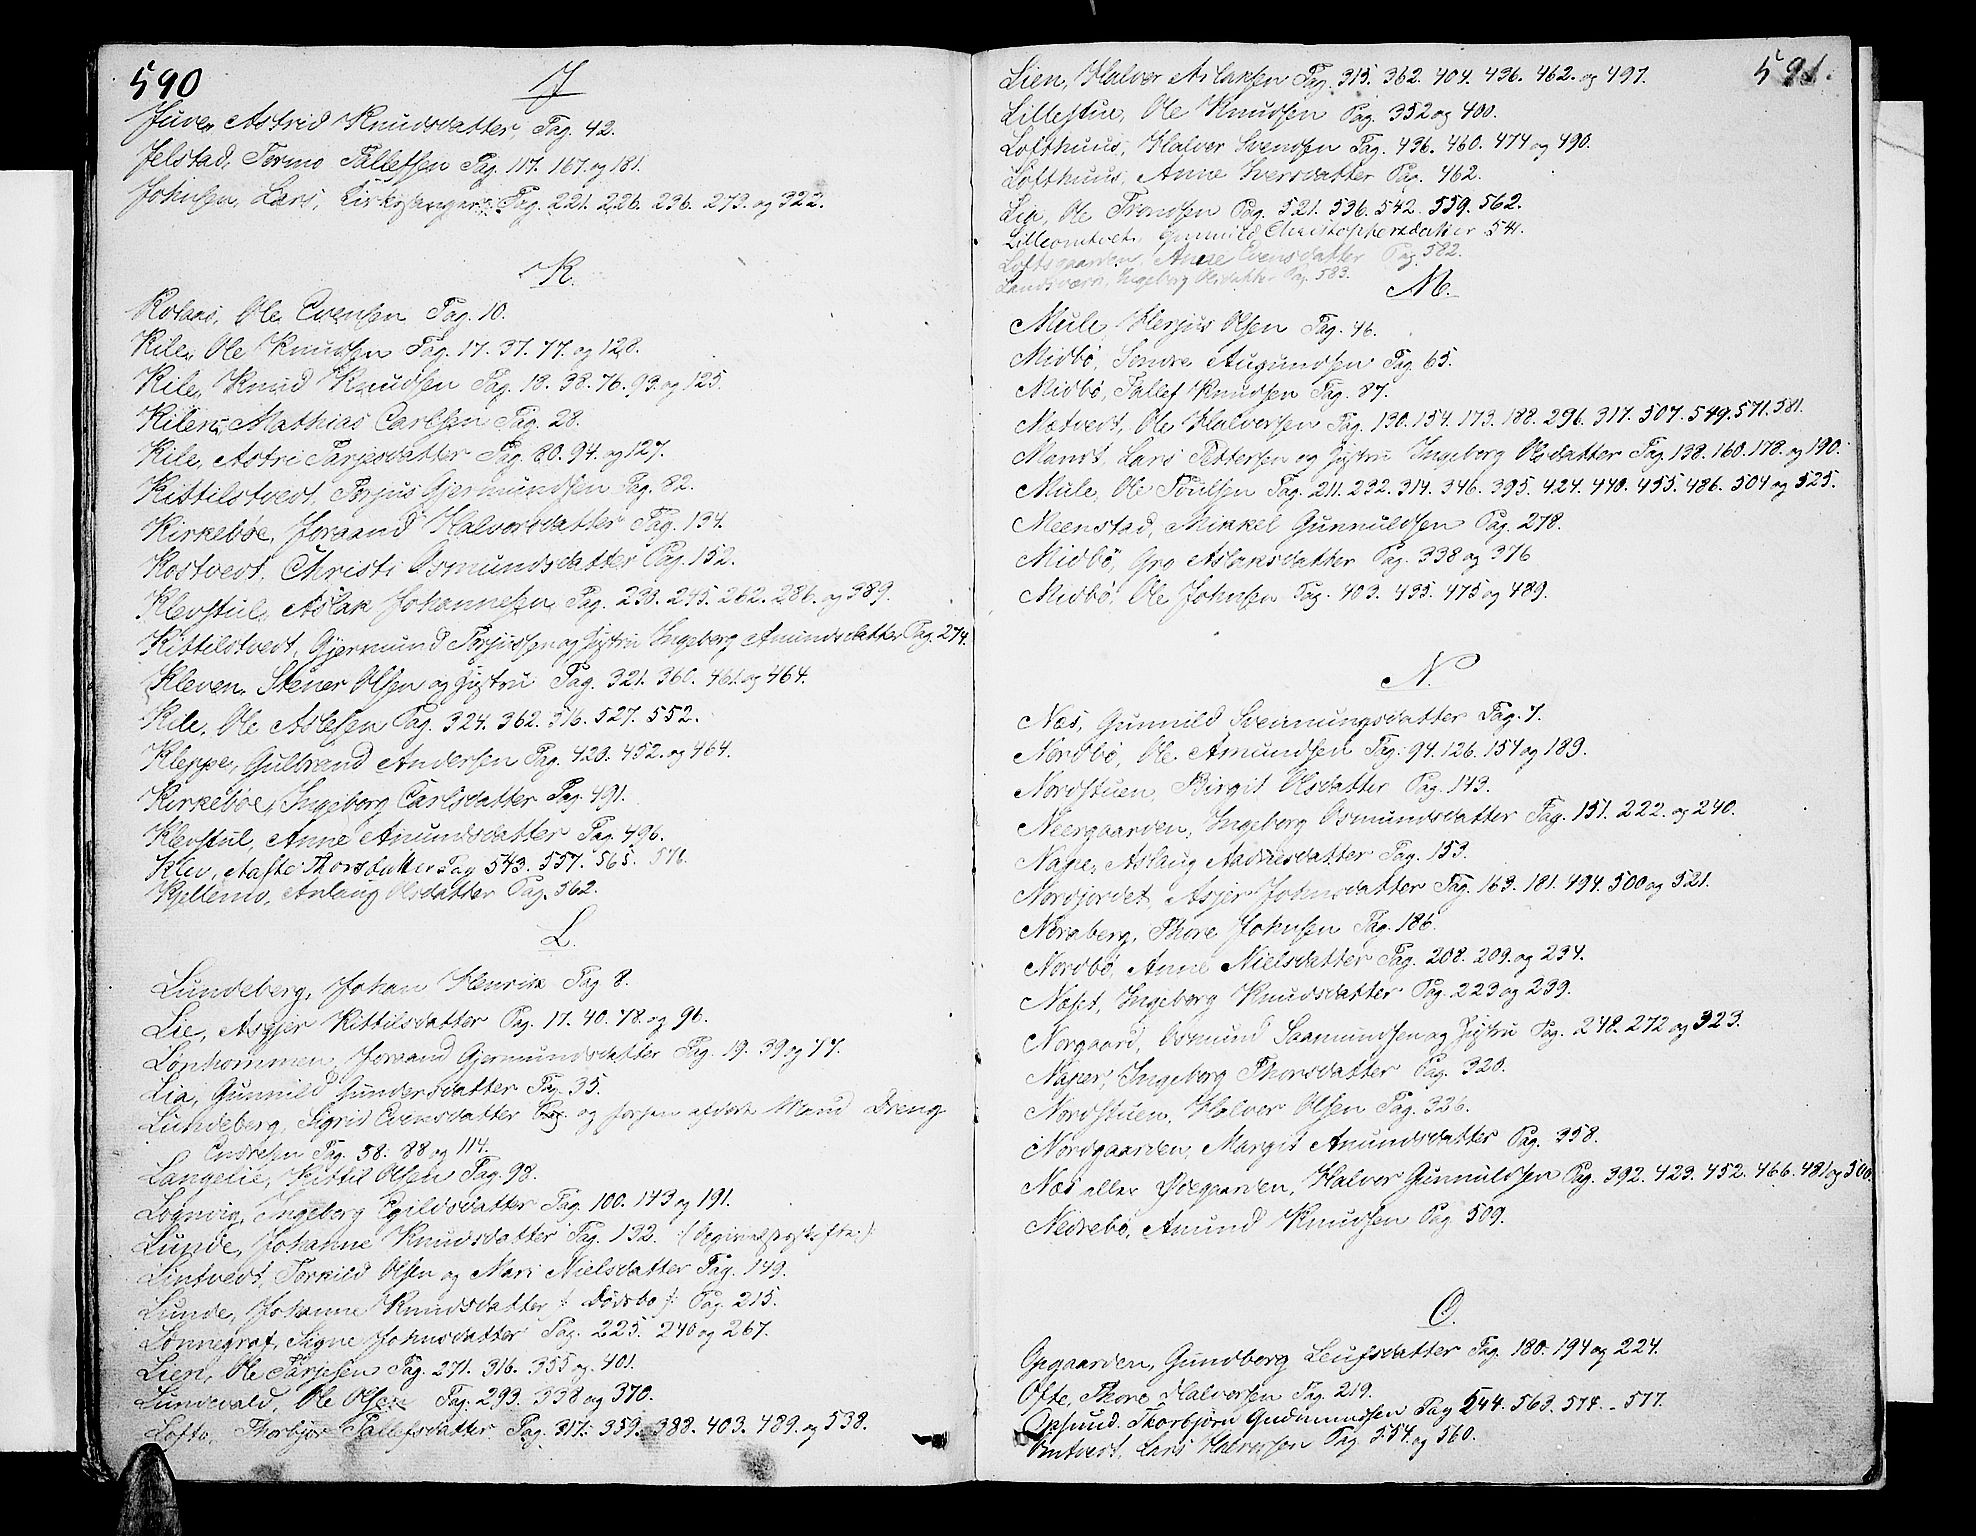 590
J
Juve, Astrid Knudsdatter, Pag. 42.
Jelstad, Tormo Tallefsen Pag. 117. 167. og 181.
Johnsen, Lars, Kirkesanger. Pag. 221. 226. 236. 273. og 322.
K.
Ole Evensen Pag. 10.
Kile, Ole Knudsen Pag. 17. 37. 77. og 128.
Kile, Knud Knudsen Pag. 18. 38. 76. 93. og 125.
Kilen, Mathias Carlsen Pag. 28.
Kile, Astri Tarjesdatter Pag. 80. 94. og 127.
Kittilstvedt, Torjus Gjermundsen Pag. 82.
Kirkebøe, Joraand Halvorsdatter Pag. 134.
Kostvedt, Christi Osmundsdatter Pag. 152.
Klevstul, Aslak Johannesen, Pag. 239. 245. 262. 286. og 389.
Kittilstvedt, Gjermund Torjussen og Hustru Ingeborg Amundsdatter Pag. 274.
Kleven, Stener Olsen og Hustru Pag. 321. 360. 461. og 464.
Kile, Ole Aslesen Pag. 324. 362. 516. 527. 552.
Kleppe, Gulbrand Andersen Pag. 420. 452. og 464.
Kirkebøe, Ingeborg Carlsdatter Pag. 491.
Klevstul, Anne Anundsdatter Pag. 496.
Klev, Aaste Thorsdatter Pag 543. 557. 565. 576.
Kjellemo, Anlaug Olsdatter Pag. 562.
L.
Lundeberg, Johan Henrik Pag 8.
Lie, Asgjer Kittilsdatter Pag. 17. 40. 78. og 96.
Lønhommen, Joraand Gjermundsdatter Pag. 19. 39 og 77.
Lia, Gunnild Gundersdatter Pag. 35.
Lundeberg, Sigrid Evensdatter Pag. og hendes afdøde Mand Dreng
Endresen Pag. 58. 88 og 114.
Langelie, Kittil Olsen Pag. 98.
Lognvig, Ingeborg Egilsdatter Pag. 100. 143 og 191.
Lunde, Johanne Knudsdatter Pag. 132.
Lintvedt, Torkild Olsen og Mari Nielsdatter Pag. 149.
Lunde, Johanne Knudsdatter /: Dødsbo :/ Pag. 215.
Lønnegraf, Signe Johnsdatter Pag. 225. 240 og 267.
Lien, Ole Tarjesen Pag. 271. 316. 355 og. 401.
Lundevald, Ole Olsen Pag. 293. 338 og 370.
Lofte, Thorbjør Tallefsdatter Pag. 317. 359. 388. 403. 489. og 538.
591.
Lien, Halvor Aslaksen Pag. 315. 362. 404. 436. 462. og 497.
Lillestue, Ole Knudsen Pag. 352 og 400.
Lofthuus, Halvor Svendsen Pag. 436. 460. 474 og 490.
Lofthuus, Anne Iversdatter Pag. 462.
Lia, Ole Trondsen Pag. 521. 536. 542. 559. 562.
Lilleomtvet. Gunnild Christophersdatter 541.
Loftsgaarden, Anne Evensdatter Pag. 582.
Landsværk, Ingeborg Olsdatter Pag. 583.
M.
Mule, Herjus Olsen Pag. 46.
Midbö, Sondre Augundsen Pag 65.
Midbö, Tallef Knudsen Pag. 87.
Mætvedt, Ole Halvorsen Pag. 130. 154. 173. 188. 296. 317. 507. 549. 571. 581.
Mandt, Lars Pettersen og Hustru Ingeborg Olsdatter Pag. 138. 160. 178. og 190.
Mule, Ole Poulsen Pag. 211. 232. 314. 346. 395. 424. 440. 455. 486. 504 og 525.
Meenstad, Mikkel Gunnuldsen Pag. 278.
Midbö, Gro Aslaksdatter Pag. 338 og 376
Midbö, Ole Johnsen Pag. 403. 435. 475 og 489.
N.
Næs, Gunnild Sveinungsdatter Pag. 7.
Nordbö, Ole Amundsen Pag. 94. 126. 154 og 189.
Nordstuen, Birgit Olsdatter Pag. 143.
Neergaarden, Ingeborg Osmundsdatter Pag. 151. 222. og 240.
Nape, Aslaug Aadnesdatter Pag. 153.
Nordjordet, Asjer Johnsdatter Pag. 163. 181. 494. 500 og 521.
Noraberg, Thore Johnsen Pag. 186.
Nordbö, Anne Nielsdatter Pag. 208. 209. og 234.
Næset, Ingeborg Knudsdatter Pag. 223 og 239.
Norgaard, Osmund Saamundsen og Hustru Pag. 248. 272 og 323.
Naper, Ingeborg Thorsdatter Pag. 320.
Nordstuen, Halvor Olsen Pag. 336.
Nordgaarden, Margit Anundsdatter Pag. 358.
Næs eller Ødegaarden, Halvor Gunnuldsen Pag. 392. 423. 452. 466. 481 og 500.
Nedrebö, Amund Knudsen Pag 509.
O.
Opgaarden, Gundborg Leufsdatter Pag. 180. 194 og 224.
Ofte, Thore Halvorsen Pag. 219.
Opsund. Thorbjørn Gudmundsen Pag 544. 563. 574. - 577.
Omtvedt, Lars Halvorsen Pag. 554. og 560.